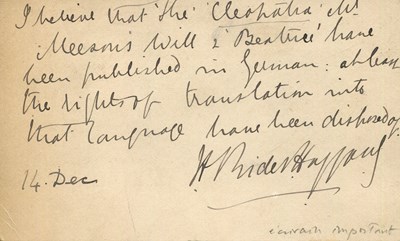 I believe that 'She' 'Cleopatra' Mr
Meeson's Will & 'Beatrice' have
been published in German: at least
the rights of translation into
that language have been disposed of.
14. Dec
H Rider Haggard
important